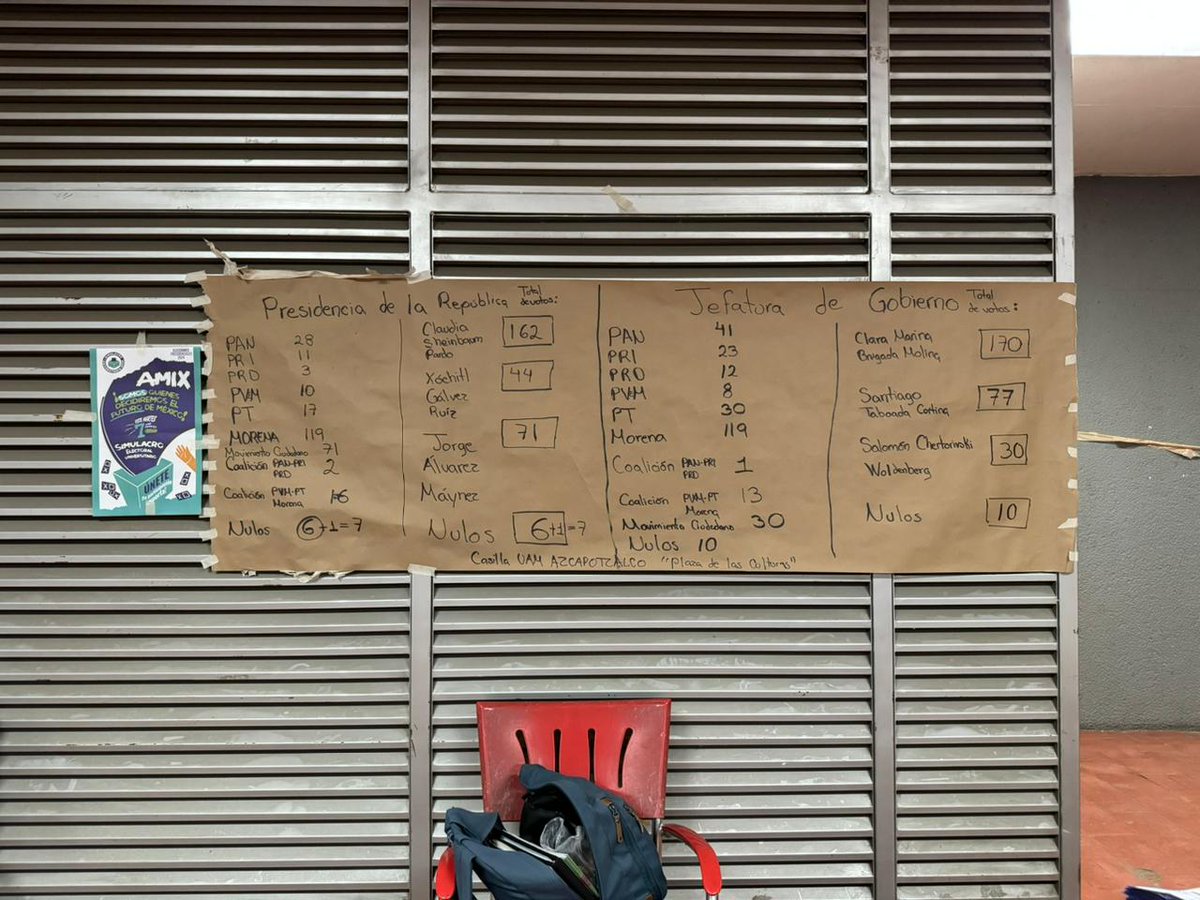 Presidencia de la República
Total de votos:
PAN 28
PRI 11
PRD 3
PVM 10
PT 17
MORENA 119
Movimiento Ciudadano 71
Coalición PAN-PRI 2
PRD
Coalición PVM-PT 16
Morena
Nulos 6+1=7
Claudia
Sheinbaum 162
Pardo
Xóchitl 44
Gálvez
Ruíz
Jorge 71
Álvarez
Máynez
Nulos 6+1=7
Jefatura de Gobierno
Total de votos:
PAN 41
PRI 23
PRD 12
PVM 8
PT 30
Morena 119
Coalición PAN-PRI 1
PRD
Coalición PVM-PT 13
Morena
Movimiento Ciudadano 30
Nulos 10
Clara Marina 170
Brugada Molina
Santiago 77
Taboada Cortina
Salomón Chertorivski 30
Woldenberg
Nulos 10
Casilla UAM AZCAPOTZALCO "Plaza de las Culturas"
AMIX
¡SOMOS QUIENES
DECIDIREMOS EL
FUTURO DE MÉXICO!
SIMULACRO
ELECTORAL
UNIVERSITARIO
ÚNETE